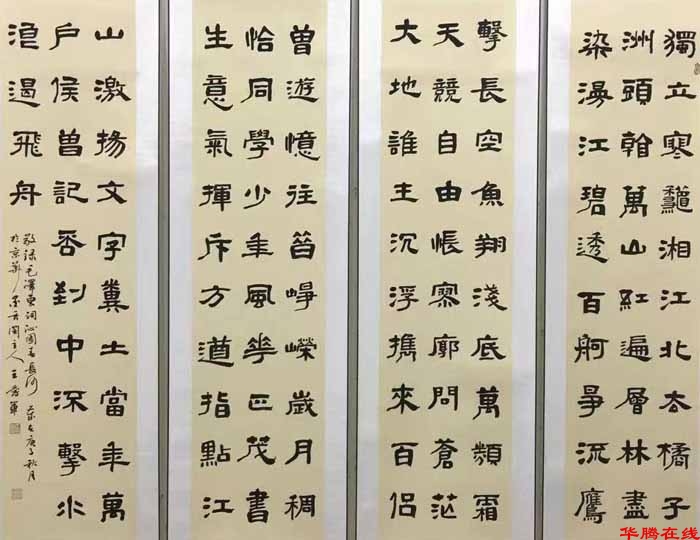 獨立寒龝湘江北去橘子
洲頭看萬山紅遍層林盡
染漫江碧透百舸爭流鷹
擊長空魚翔淺底萬類霜
天競自由悵寥廓問蒼茫
大地誰主沉浮攜來百侶
曾遊憶往昔崢嶸歲月稠
恰同學少年風華正茂書
生意氣揮斥方遒指點江
山激揚文字糞土當年萬
戶侯曾記否到中流擊水
浪遏飛舟
敬録毛澤東詞沁園春長沙 庚子秋月
於京華 閣主人王 軍
华腾在线